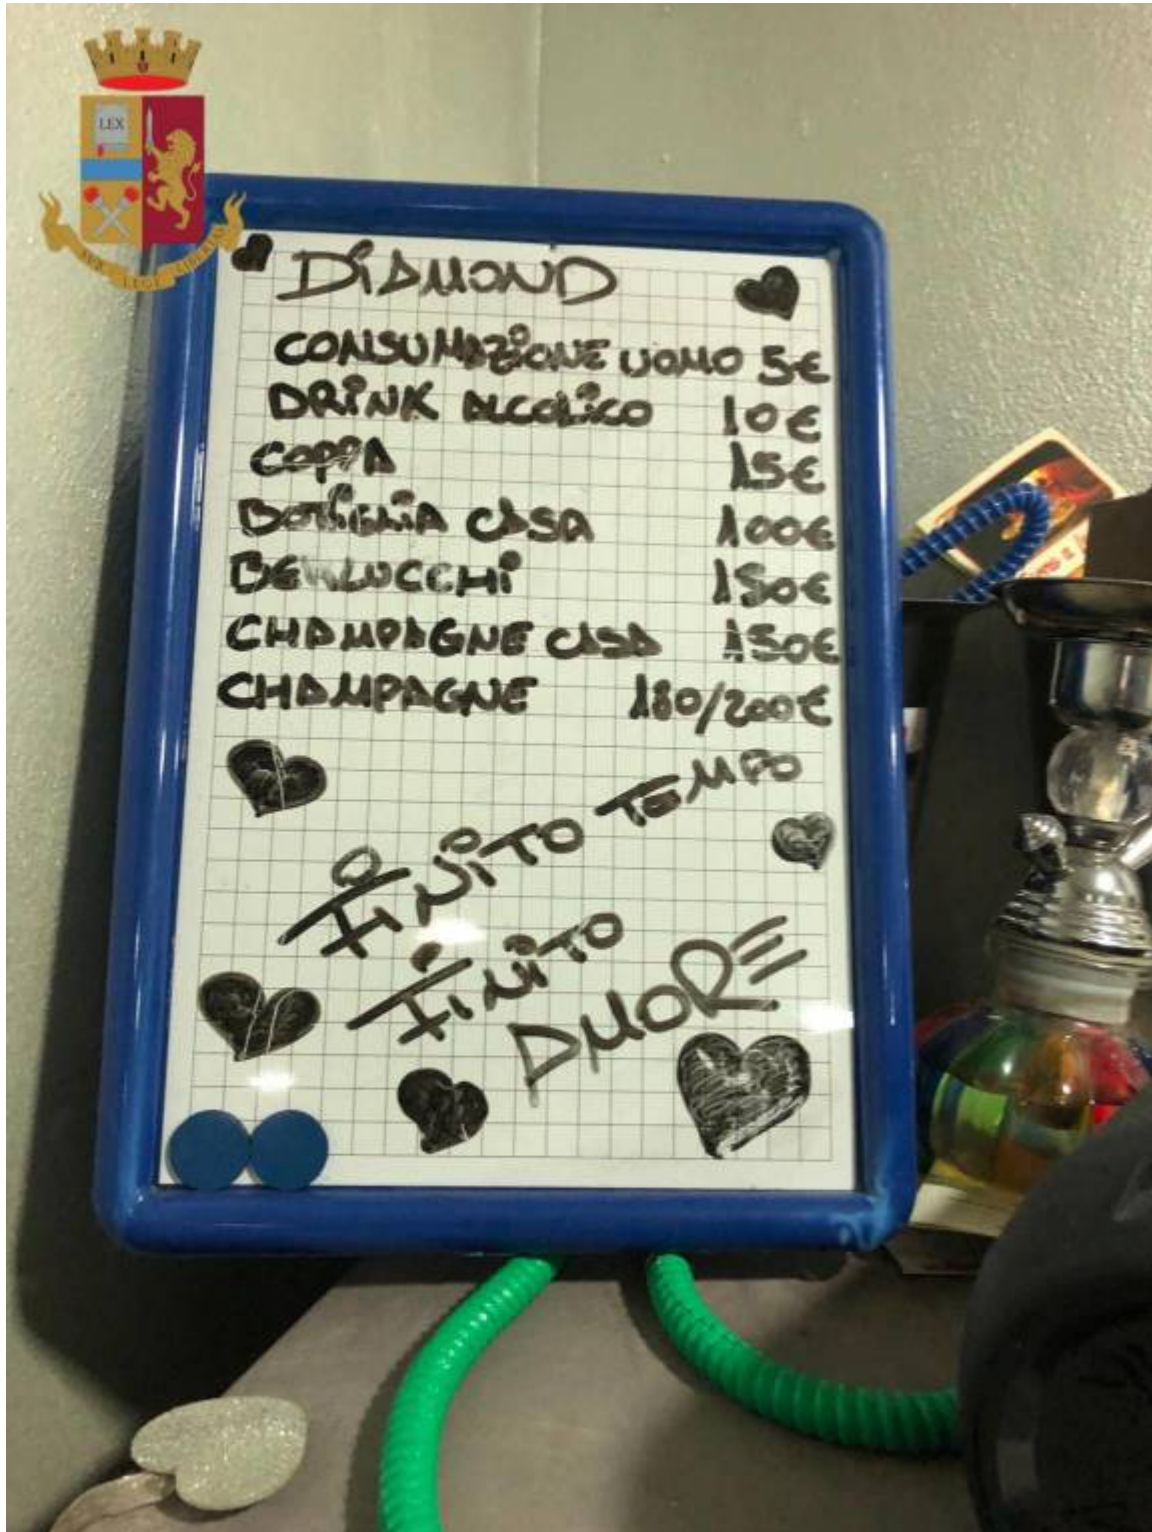 LEX
SUB LEGE LIBERTAS
DiAMOND
CONSUMAZiONE UOMO 5€
DRiNK ALCOLiCO 10€
COPPA 15€
BOTTiGLiA CASA 100€
BERLUCCHi 150€
CHAMPAGNE CASA 150€
CHAMPAGNE 180/200€
FiNiTO TEMPO
FiNiTO
AMORE